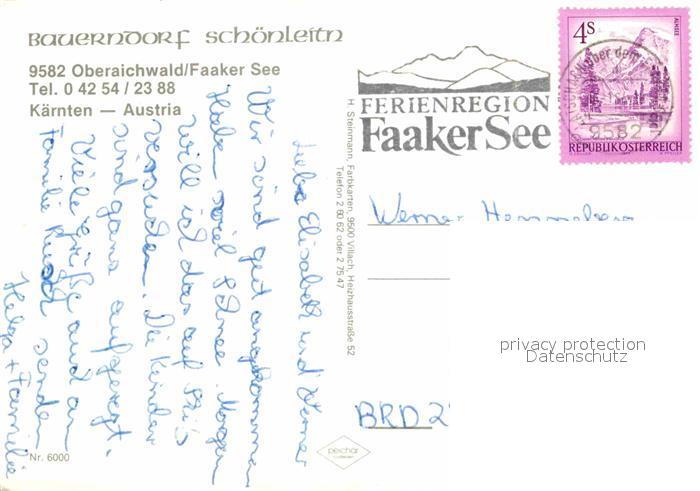 Bauerndorf Schönleitn
9582 Oberaichwald/Faaker See
Tel. 0 42 54 / 23 88
Kärnten — Austria
Liebe Elisabeth und Werner
Wir sind gut angekommen
Haben viel Schnee. Morgen
will ich das auf Ski's
versuchen. Die Kinder
sind ganz aufgeregt.
Viele Grüße auch an
Familie senden
Helga + Familie
Nr. 6000
H. Steinmann, Farbkarten, 9500 Villach, Heizhausstraße 52
Telefon 2 80 62 oder 2 75 47
FERIENREGION
Faaker See
4 S
ALMSEE
ober dem
9582
REPUBLIK ÖSTERREICH
Werner
BRD 2
privacy protection
Datenschutz